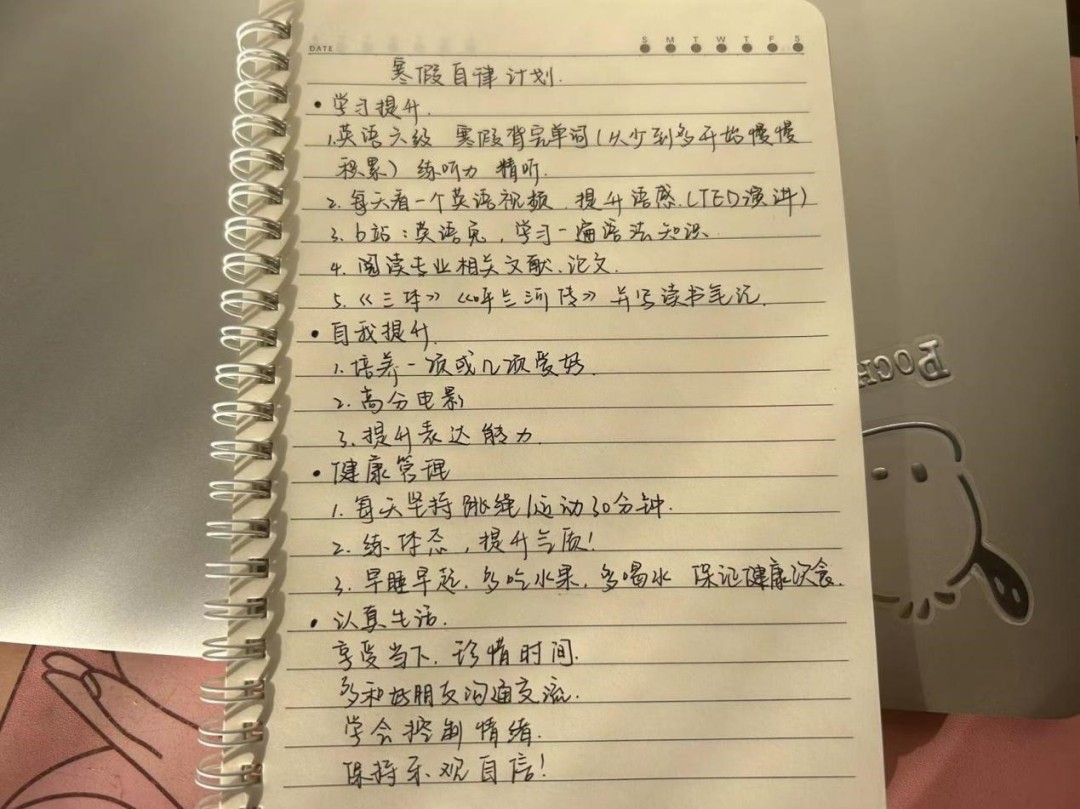 DATE
S M T W T F S
寒假自律计划.
• 学习提升.
1.英语六级 寒假背完单词(从少到多开始慢慢
积累) 练听力 精听.
2. 每天看一个英语视频. 提升语感.(TED演讲)
3. b站:英语兔, 学习一遍语法知识.
4. 阅读专业相关文献.论文.
5.《三体》《呼兰河传》并写读书笔记.
• 自我提升.
1. 培养一项或几项爱好.
2. 高分电影
3. 提升表达能力.
• 健康管理
1. 每天坚持跳绳/运动30分钟.
2. 练体态, 提升气质!
3. 早睡早起. 多吃水果. 多喝水 保证健康饮食.
• 认真生活.
享受当下. 珍惜时间.
多和好朋友沟通交流.
学会控制情绪.
保持乐观自信!